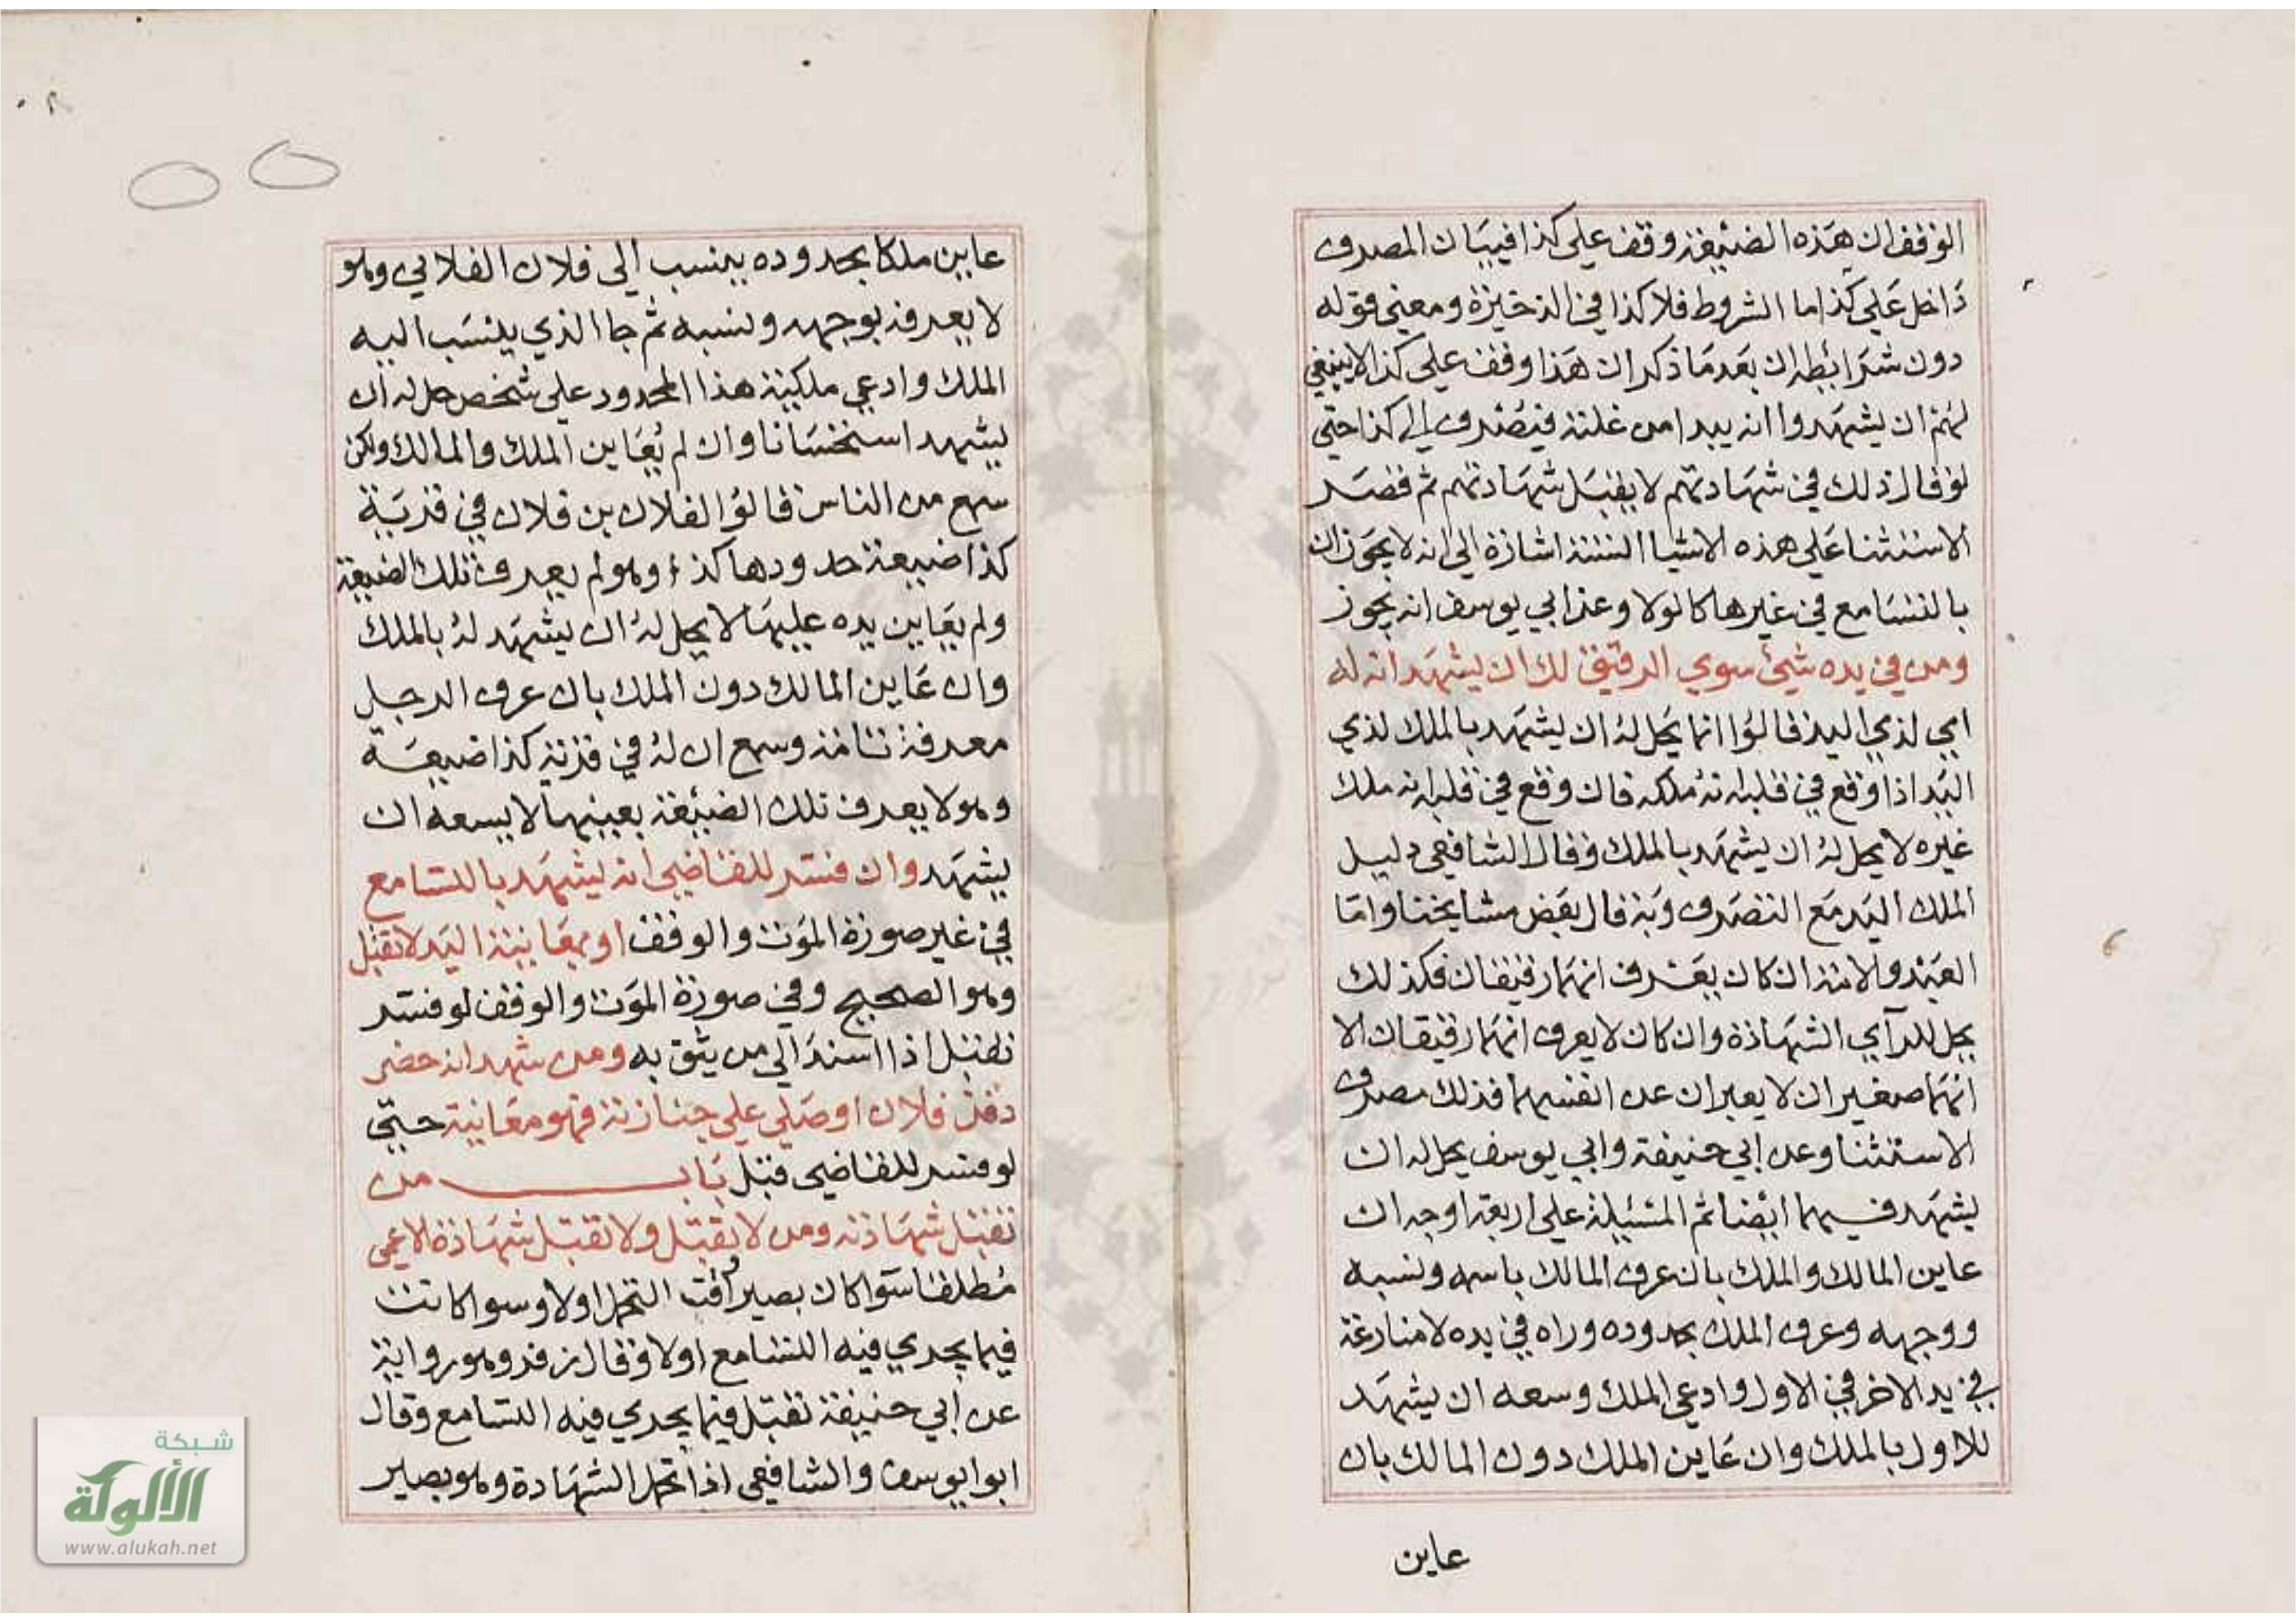 الوقف ان هذه الضيعة وقف على كذا فيبان المصرف
داخل على كذا اما الشروط فلا كذا في الذخيرة ومعنى قوله
دون شرائطه ان بعد ما ذكر ان هذا وقف على كذا لا ينبغي
لهم ان يشهدوا انه يبدا من غلته فيصرف الى كذا حتى
لو قال ذلك في شهادتهم لا يقبل شهادتهم ثم قصر
الاستثنا على هذه الاشيا الستة اشارة الى انه لا يجوز ان
بالتسامع في غيرها كالولا وعن ابي يوسف انه يجوز
ومن في يده شيئ سوي الرقيق لك ان يشهد انه له
اي لذي اليد قالوا انما يحل له ان يشهد بالملك لذي
اليد اذا وقع في قلبه انه ملكه فان وقع في قلبه انه ملك
غيره لا يحل له ان يشهد بالملك وقال الشافعي دليل
الملك اليد مع التصرف وبه قال بعض مشايخنا واما
العبد والامة ان كان يعرف انهما رقيقان فكذلك
يحل للرآي الشهادة وان كان لا يعرف انهما رقيقان الا
انهما صغيران لا يعبران عن انفسهما فذلك مصرف
الاستثنا وعن ابي حنيفة وابي يوسف يحل له ان
يشهد فيهما ايضا ثم المسئلة على اربعة اوجه ان
عاين المالك والملك بان عرف المالك باسمه ونسبه
ووجهه وعرف الملك بحدوده وراه في يده لا منازعة
في يد الاخر في الاول وادعى الملك وسعه ان يشهد
للاول بالملك وان عاين الملك دون المالك بان
عاين
عاين ملكا بحدوده ينسب الى فلان الفلاني وهو
لا يعرفه بوجهه ونسبه ثم جا الذي ينسب اليه
الملك وادعي ملكية هذا المحدود على شخص حل له ان
يشهد استحسانا وان لم يعاين الملك والمالك ولكن
سمع من الناس قالوا لفلان بن فلان في قرية
كذا ضيعة حدودها كذا وهو لم يعرف تلك الضيعة
ولم يعاين يده عليها لا يحل له ان يشهد له بالملك
وان عاين المالك دون الملك بان عرف الرجل
معرفة تامة وسمع ان له في قرية كذا ضيعة
وهو لا يعرف تلك الضيعة بعينها لا يسعه ان
يشهد وان فسر للقاضي انه يشهد بالتسامع
في غير صورة الموت والوقف او بمعاينة اليد لا تقبل
وهو الصحيح وفي صورة الموت والوقف لو فسر
تقبل اذا اسند الى من يثق به ومن شهد انه حضر
دفن فلان او صلي على جنازته فهو معاينة حتى
لو فسر للقاضي قبل باب من
تقبل شهادته ومن لا تقبل ولا تقبل شهادة الاعمى
مطلقا سوا كان بصيرا وقت التحمل اولا وسوا كانت
فيما يجري فيه التسامع اولا وقال زفر وهو رواية
عن ابي حنيفة تقبل فيما يجري فيه التسامع وقال
ابو ايوسف والشافعي اذا تحمل الشهادة وهو بصير
شبكة
الألوكة
www.alukah.net